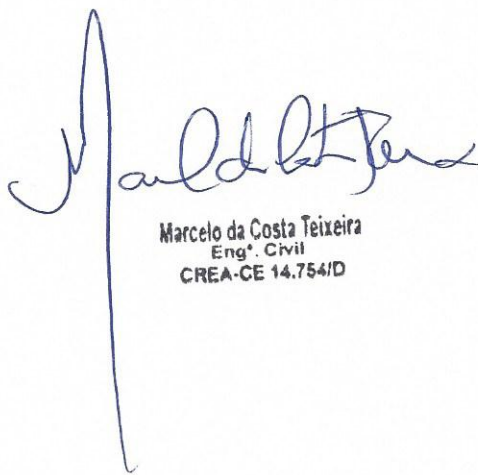 Marcelo da Costa Teixeira
Engº. Civil
CREA-CE 14.754/D